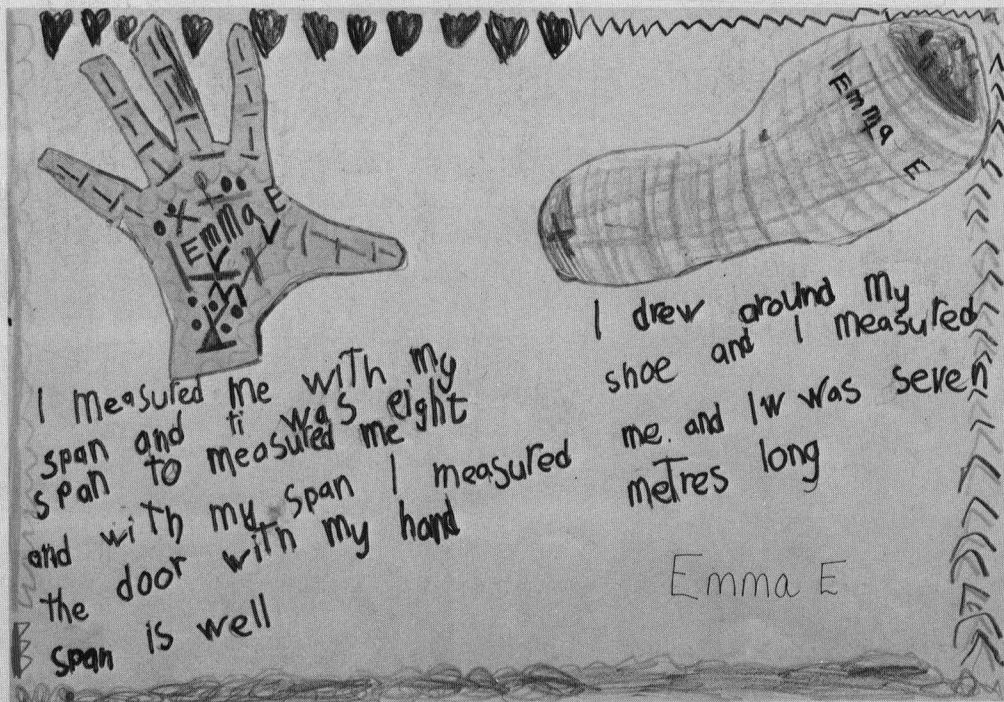 Emma E
Emma E
I measured me with my
span and ti was eight
span to measured me
and with my span I measured
the door with my hand
span is well
I drew around my
shoe and I measured
me. and Iw was seven
metres long
Emma E